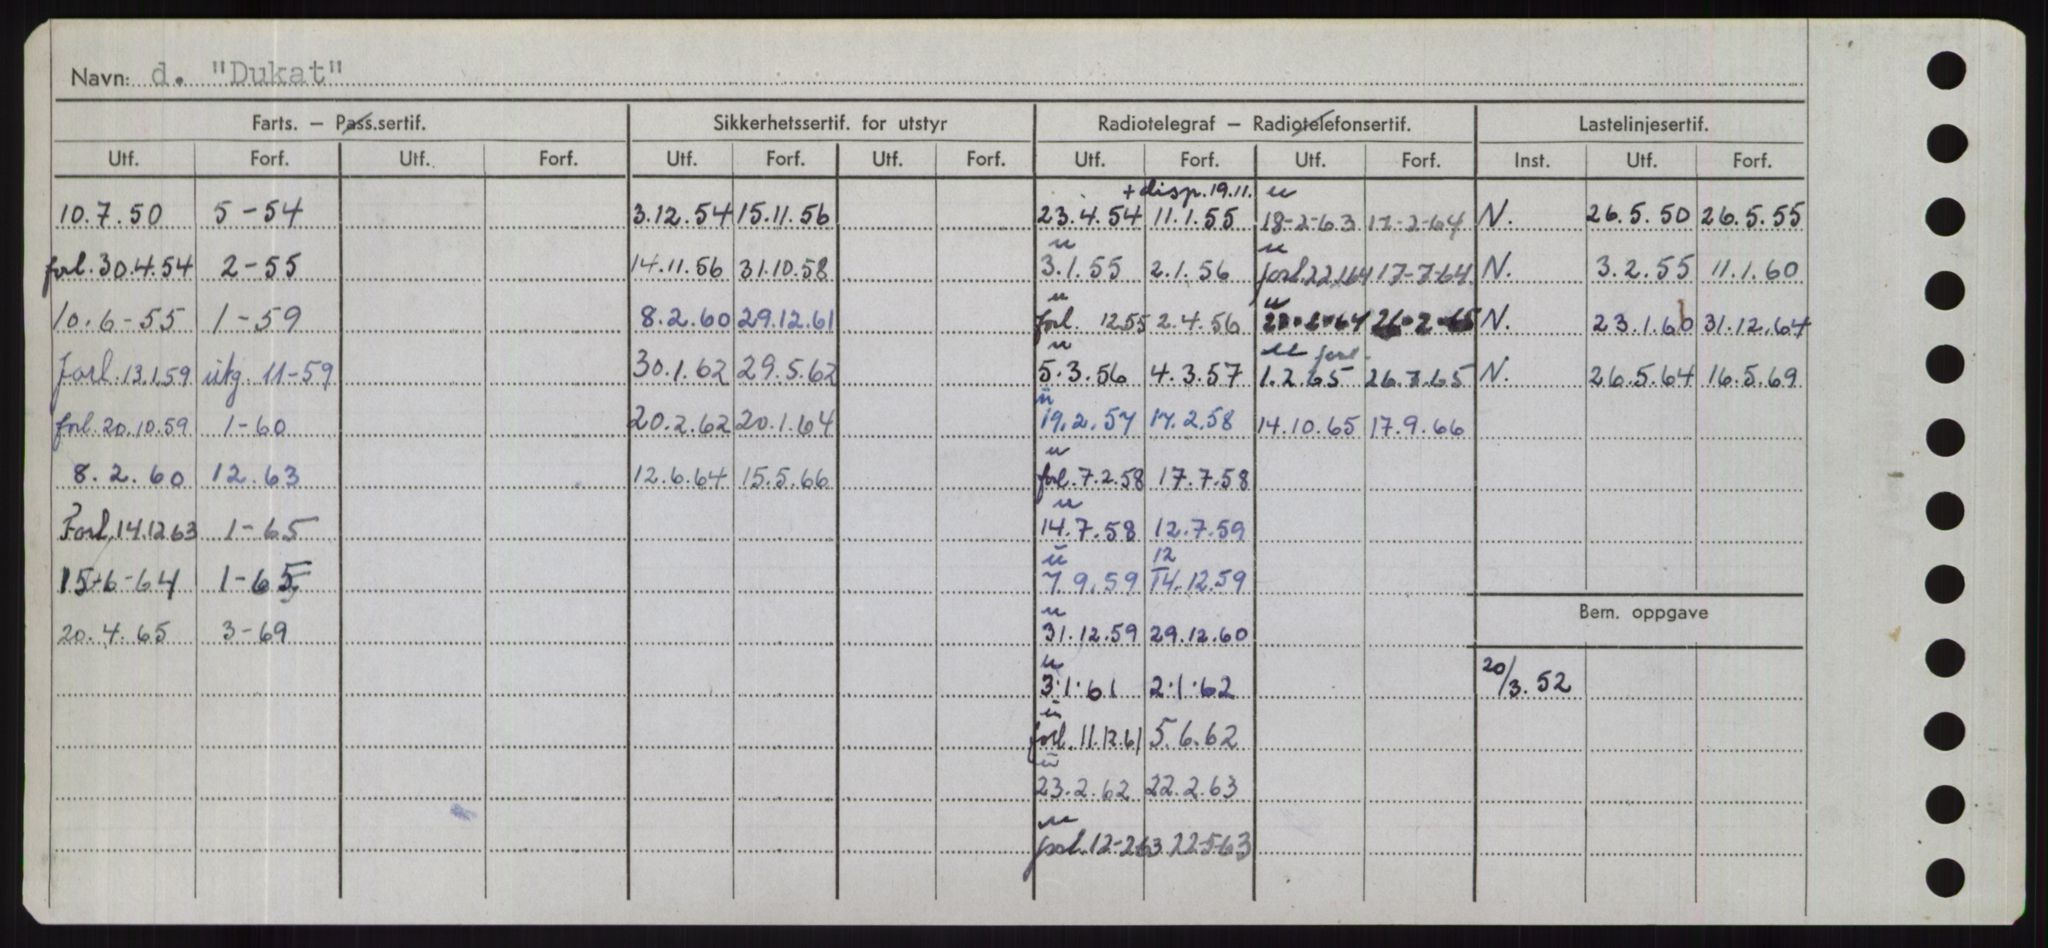 Navn: d. "Dukat"
Farts. — Pass.sertif. Sikkerhetssertif. for utstyr Radiotelegraf — Radiotelefonsertif. Lastelinjesertif.
Utf. Forf. Utf. Forf. Utf. Forf. Utf. Forf. Utf. Forf. Utf. Forf. Inst. Utf. Forf.
+ disp. 19.11. u
10.7.50 5-54 3.12.54 15.11.56 23.4.54 11.1.55 18-2-63 17-2-64 N. 26.5.50 26.5.55
u u
forl. 30.4.54 2-55 14.11.56 31.10.58 3.1.55 2.1.56 forl. 22.1.64 17-7-64 N. 3.2.55 11.1.60
u u
10.6-55 1-59 8.2.60 29.12.61 forl. 12.55 2.4.56 26-2-65 N. 23.1.60 31.12.64
u u forl.
forl. 13.1.59 utg. 11-59 30.1.62 29.5.62 5.3.56 4.3.57 1.2.65 26.7.65 N. 26.5.64 16.5.69
u
forl. 20.10.59 1-60 20.2.62 20.1.64 19.2.57 17.2.58 14.10.65 17.9.66
u
8.2.60 12.63 12.6.64 15.5.66 forl. 7.2.58 17.7.58
u
Forl. 14.12.63 1-65 14.7.58 12.7.59
u 12
15-6-64 1-65 7.9.59 14.12.59
Bem. oppgave
u
20.4.65 3-69 31.12.59 29.12.60
u
3.1.61 2.1.62 20/3.52
u
forl. 11.12.61 5.6.62
u
23.2.62 22.2.63
u
forl. 12-2-63 22-5-63